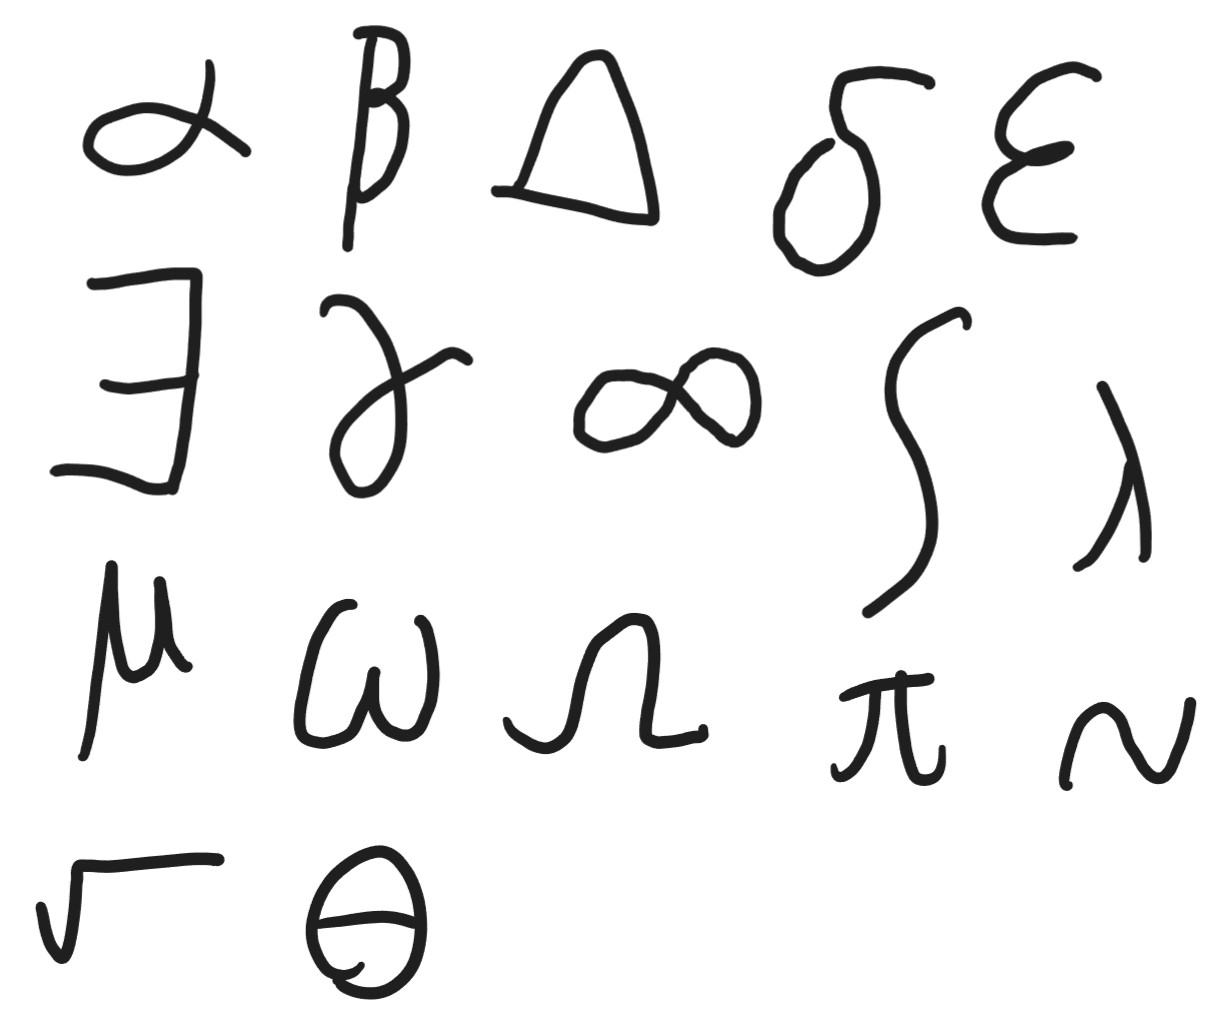 α β Δ δ ε
∃ γ ∞ ∫ λ
μ ω Ω π ~
√ θ